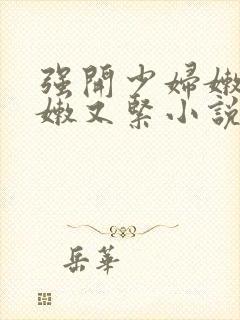 强開少婦嫩
嫩又緊小說
岳華